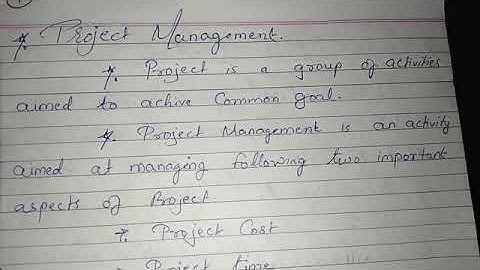 *. Project Management.
*. Project is a group of activities
aimed to achive Common goal.
*. Project Management is an activity
aimed at managing following two important
aspects of Project
*. Project Cost
*. Project time